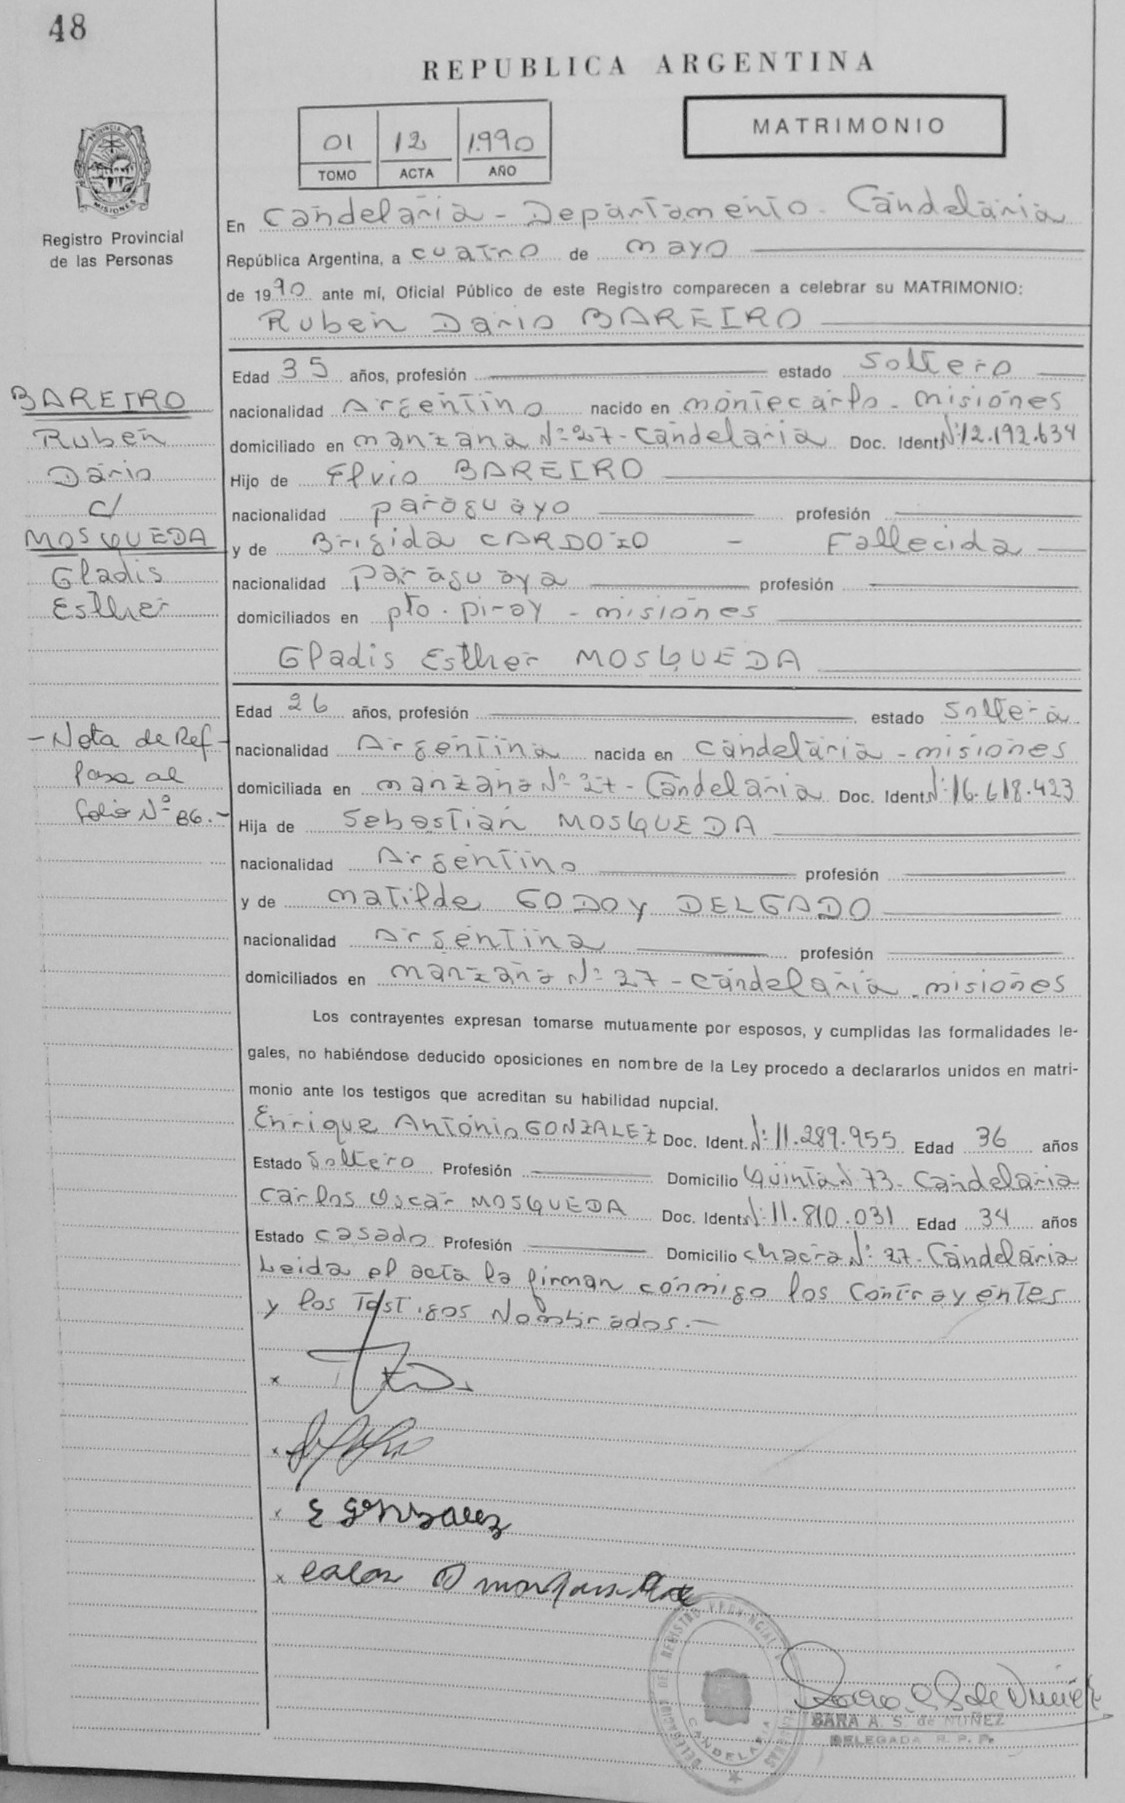 48
REPUBLICA ARGENTINA
01 12 1.990
TOMO ACTA AÑO
MATRIMONIO
PROVINCIA DE MISIONES
Registro Provincial
de las Personas
En Candelaria - Departamento - Candelaria
República Argentina, a cuatro de mayo
de 1990 ante mí, Oficial Público de este Registro comparecen a celebrar su MATRIMONIO:
Ruben Dario BAREIRO
Edad 35 años, profesión estado Soltero
nacionalidad Argentino nacido en montecarlo - misiones
domiciliado en manzana Nº 27 - Candelaria Doc. Ident. Nº 12.192.634
Hijo de Elvio BAREIRO
nacionalidad paraguayo profesión
y de Brigida CARDOZO - Fallecida
nacionalidad paraguaya profesión
domiciliados en pto. piray - misiones
Gladis Esther MOSQUEDA
Edad 26 años, profesión estado Soltera
nacionalidad Argentina nacida en Candelaria - misiones
domiciliada en manzana Nº 27 - Candelaria Doc. Ident. Nº 16.618.423
Hija de Sebastián MOSQUEDA
nacionalidad Argentino profesión
y de Matilde GODOY DELGADO
nacionalidad Argentina profesión
domiciliados en manzana Nº 27 - Candelaria - misiones
Los contrayentes expresan tomarse mutuamente por esposos, y cumplidas las formalidades le-
gales, no habiéndose deducido oposiciones en nombre de la Ley procedo a declararlos unidos en matri-
monio ante los testigos que acreditan su habilidad nupcial.
Enrique Antonio GONZALEZ Doc. Ident. Nº 11.289.955 Edad 36 años
Estado Soltero Profesión Domicilio Quinta Nº 73 - Candelaria
Carlos Oscar MOSQUEDA Doc. Ident. Nº 11.810.031 Edad 34 años
Estado casado Profesión Domicilio chacra Nº 27 - Candelaria
Leida el acta la firman conmigo los Contrayentes
y los Testigos Nombrados.-
BAREIRO
Ruben
Dario
c/
MOSQUEDA
Gladis
Esther
- Nota de Ref -
Pasa al
folio Nº 86.-
x
x
x E Gonzalez
x
DELEGACION DEL REGISTRO PROVINCIAL DE LAS PERSONAS
CANDELARIA
SARA A. S. de NUÑEZ
DELEGADA R. P. P.